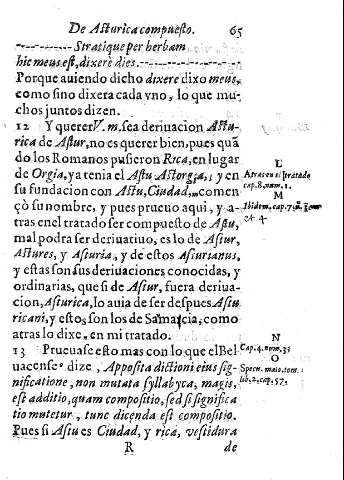 De Asturica compuesto. 65
Stratique per herbam
hic meus est, dixere dies.
Porque auiendo dicho dixere dixo meus,
como sino dixera cada vno, lo que mu-
chos juntos dizen.
12 Y querer V. m. sea deriuacion Astu-
rica de Astur, no es querer bien, pues quã
do los Romanos pusieron Rica, en lugar
de Orgia, ya tenia el Astu Astorgia, y en
su fundacion con Astu, Ciudad, comen
çò su nombre, y pues prueuo aqui, y a-
tras en el tratado ser compuesto de Astu,
mal podra ser deriuatiuo, es lo de Astur,
Astures, y Asturia, y de estos Asturianus,
y estas son sus deriuaciones conocidas, y
ordinarias, que si de Astur, fuera deriua-
cion, Asturica, lo auia de ser despues Astu
ricani, y estos son los de Samaria, como
atras lo dixe, en mi tratado.
13 Prueuase esto mas con lo que el Bel-
uacense dize, Apposita dictioni eius sig-
nificatione, non mutata syllabyca, magis,
est additio, quam compositio, sed si significa
tio mutetur, tunc dicenda est compositio.
Pues si Astu es Ciudad, y rica, vestidura
R de
L
Atras en el tratado
cap. 8. num. 1.
M
Ibidem. cap. 7.
et 4
N
Cap. 4. num. 3.
O
Specu. maio. tom.
lib. 2. cap. 57.